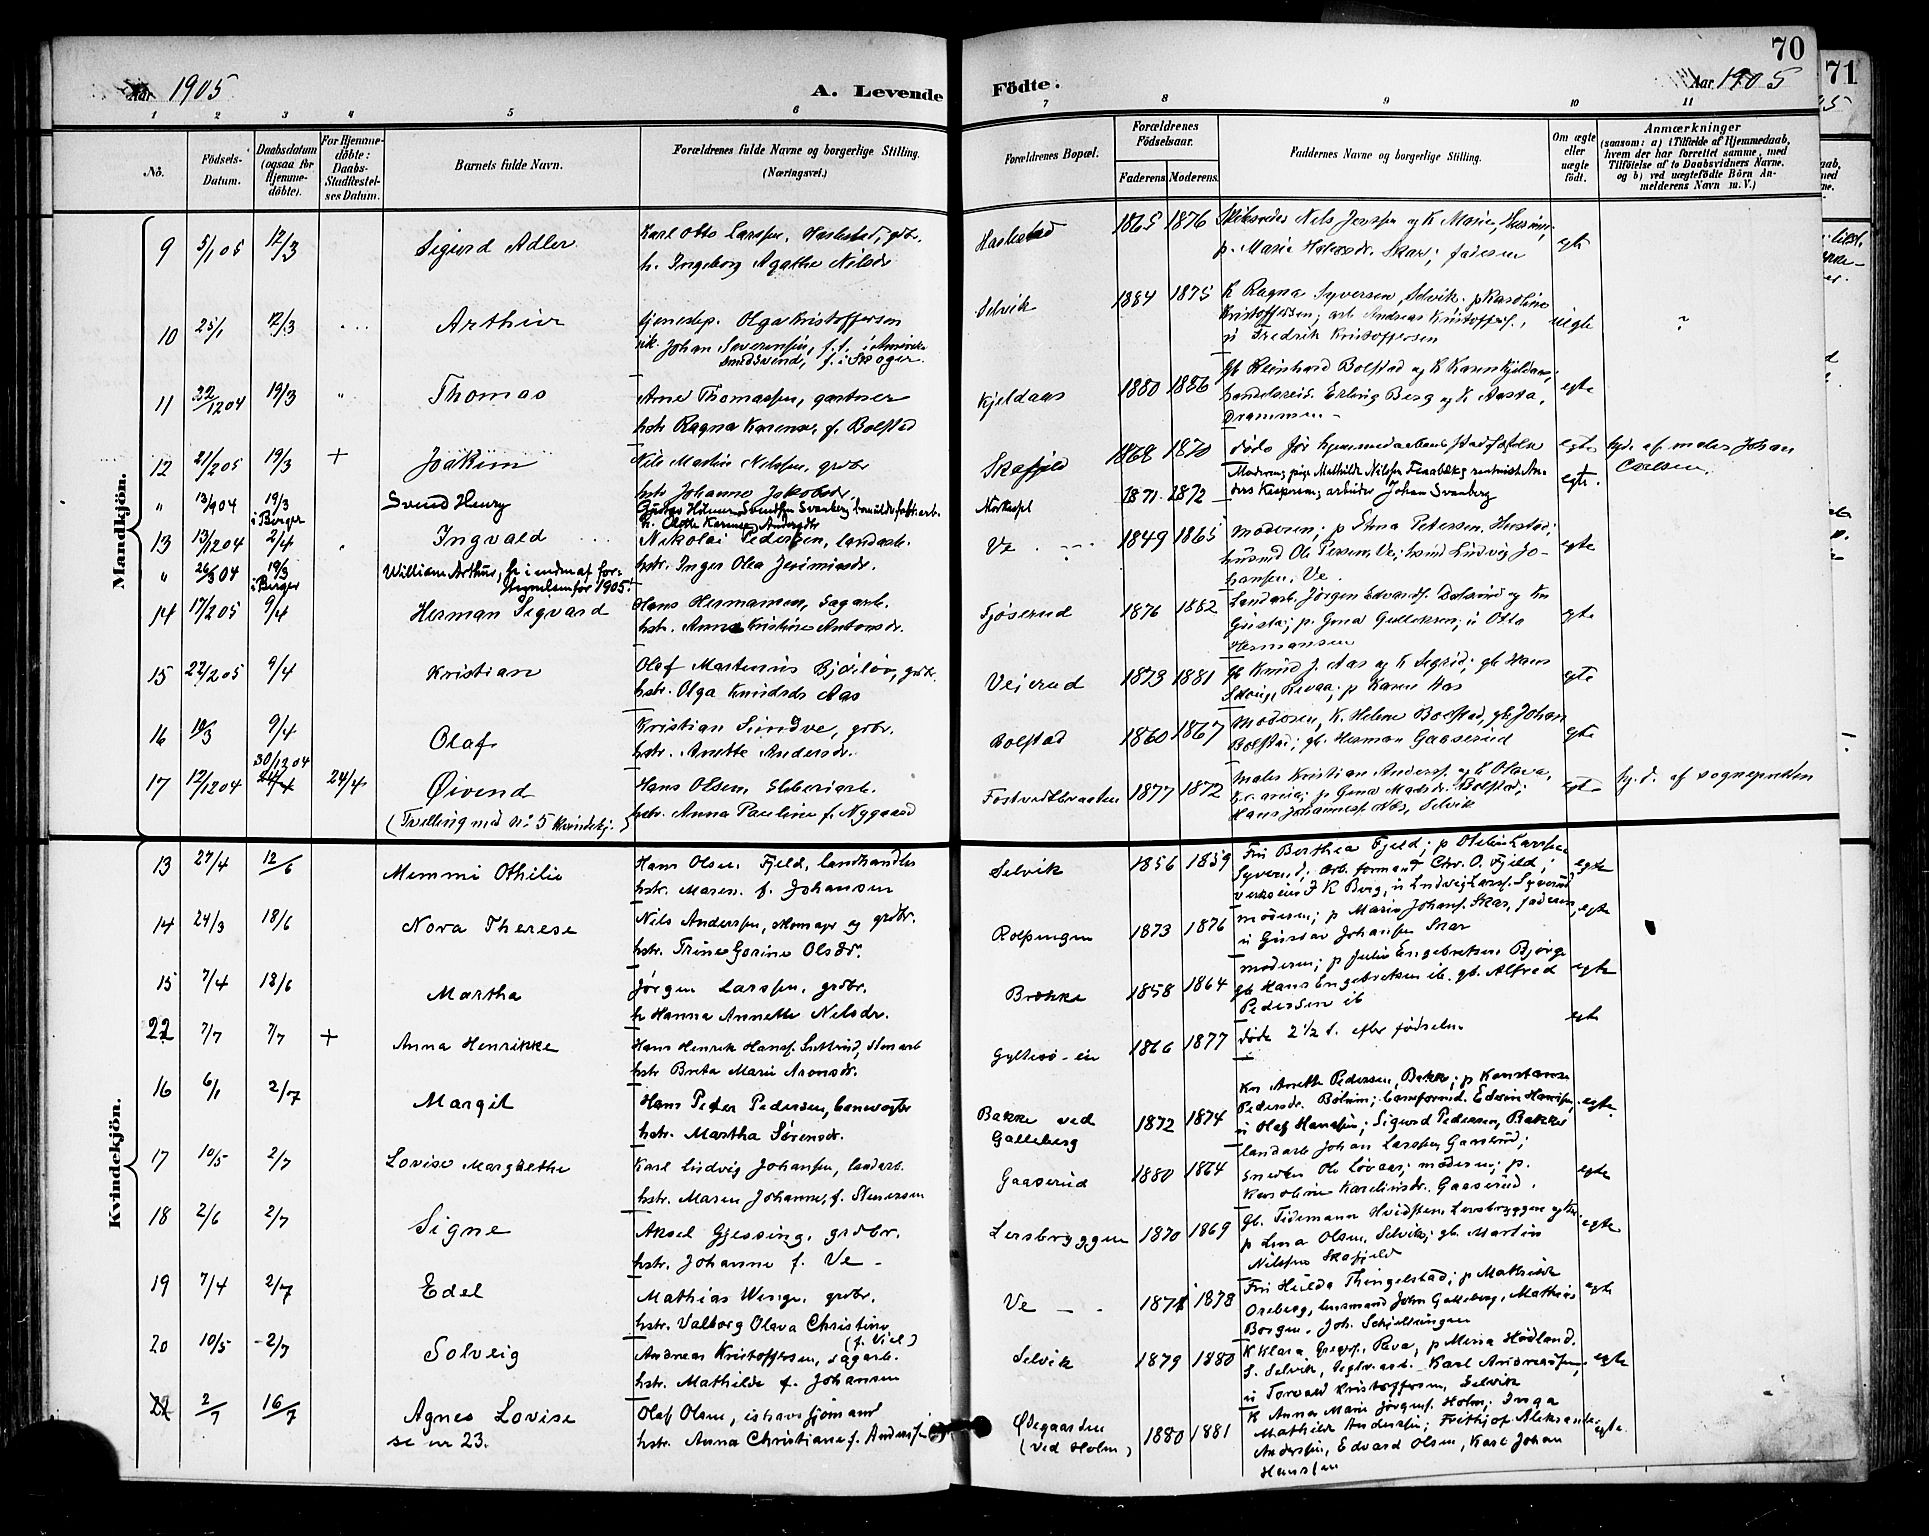 70
71
Aar 1905
A. Levende
Födte.
Aar 1905
1 2 3 4 5 6 7 8 9 10 11
No.
Födsels-Datum.
Daabsdatum (ogsaa for Hjemme-döbte).
For Hjemme-döbte: Daabs-Stadfæstel-ses Datum.
Barnets fulde Navn.
Forældrenes fulde Navne og borgerlige Stilling. (Næringsvei.)
Forældrenes Bopæl.
Forældrenes Födselsaar.
Faderens. Moderens.
Faddernes Navne og borgerlige Stilling.
Om ægte eller uægte födt.
Anmærkninger
(saasom: a) i Tilfælde af Hjemmedaab, hvem der har forrettet samme, med Tilföielse af to Daabsvidners Navne. og b) ved uægtefödte Börn An-melderens Navn m. V.)
Mandkjön.
9 5/1 05 12/3 Sigurd Adler
Karl Otto Larssen, Haslestad, grbr.
h. Ingeborg Agathe Nilsdr
Haslestad 1865 1876
Nils Jenssen og k Marie,
p. Marie Skar; faderen
egte
10 25/1 12/3 Arthur
tjenestep. Olga Kristoffersen
Johan Severensen, f.t. i Amerika
smedsvend, f. i Skoger
Selvik 1884 1875
k Ragna Syversen, Selvik. p Karoline
Kristoffersen; arb Andreas Kristoffers.,
u Fredrik Kristoffersen
uegte ?
11 19/3 Thomas
Arne Thomassen, gartner
hstr Ragna Karense, f. Bolstad
Kjeldaas 1880 1886
gb Reinhard Bolstad og k Karen Kjeldaas;
handelsreis. Erling Berg og k Aasta,
Drammen
egte
12 21/2 05 19/3 + Joakim
Nils Martin Nilssen, grbr
hstr Johanne Jakobsdr.
Skafjeld 1868 1870
døde før hjemmedaabens stadfæstelse
egte
hjd. af maler Johan
Carlsen.
" 13/9 04 19/3 i Berger Svend Henry
Gustav Hilmer Svendsen Svanberg bomuldsfabr.arb.
h. Olette Karine Andersdtr
1871 1872
Moderen; pige Mathilde Nilssen
ders Kaspersen; arbeider Johan Svanberg
egte.
13 13/12 04 2/4 Ingvald
Nikolai Pedersen, landarb.
hstr. Inger Olea Jeremiasdr.
Ve 1849 1865
moderen; p Stina Petersen,
husmd Ole Perssen, Ve; Ludvig Jo-
hansen, Ve.
egte
" 26/3 04 19/3 i Berger William Arthur, se i enden af for-
tegnelsen for 1905.
14 17/2 05 9/4 Herman Sigvard
Hans Hermansen, sagarb.
hstr. Anna Kristine Antonsdr.
Fjøserud 1876 1882
Landarb. Jørgen Edvards. Dalsrud og kn
Gusta; p. Gina Gulliksen; u Otto
Hermansen
egte
15 22/2 05 9/4 Kristian
Olaf Martinius Bjørløv, grbr.
hstr. Olga Knudsdr Aas
Vejerud 1873 1881
gb Knud J. Aas og k Sigrid; gb Hans
Revaa; p Karen Aas
egte
16 10/3 9/4 Olaf
Kristian Sundve, grbr.
hstr. Anette Andersdr.
Bolstad 1860 1867
moderen, k. Helene Bolstad, gb Johan
Bolstad; gb. Herman Gaaserud
egte
17 12/12 04 30/12 04 24/4 24/4 Øivend
(Tvilling med No 5 kvindekj.)
Hans Olsen, Ebberiarb.
hstr. Anna Pauline f. Nygaard
Fostvedtbraaten 1877 1872
maler Kristian Anderss. og k Olava,
p Gina Madsdr. Bolstad;
Hans Johanness. Næs, Selvik
egte
hj.d. af sognepresten
Kvindekjön.
13 27/4 12/6 Memmi Othilie
Hans Olsen Fjeld, landhandler
hstr. Maren f. Johansen
Selvik 1856 1859
Fru Berthea Fjeld; p Oteline Larssen
Syverud; arb. formand Chr. O. Fjeld;
verkseier F R Berg, u Ludvig Larss. Syverud
egte
14 24/3 18/6 Nora Therese
Nils Anderssen, skomager og grdbr.
hstr. Trine Gorine Olsdr.
Rolpingen 1873 1876
moderen; p Maria Johans. Skar, faderen,
u Gustav Johansen Skar
egte
15 7/4 18/6 Martha
Jørgen Larssen, grdbr.
h Hanna Annette Nilsdr.
Brække 1858 1864
moderen; p Julie Engebretsen Bjørge
gb Hans Engebretsen ib. gb. Alfred
Pedersen ib
egte
22 7/7 7/7 + Anna Henrikke
Hans Henrik Hanss. Sutterud, stenarb
hstr Brita Marie Aronsdr.
1866 1877
døde 2 1/2 t. efter fødselen
egte
16 6/1 2/7 Margit
Hans Peter Pedersen, banevogter
hstr. Martha Sørensdr.
Bakke ved
Galleberg
1872 1874
kn Anette Pedersen, Bakke; p Konstanse
Pedersdr. Bolum; baneformd. Edvin Hanssen,
u Olaf Hanssen; Sigurd Pedersen, Bakke
egte.
17 10/5 2/7 Lovise Margrethe
Karl Ludvig Johansen, landarb.
hstr. Maren Johanne, f. Stenersen
Gaaserud 1880 1864
landarb Johan Larssen, Gaaserud;
Ole Løvaas; moderen; p.
Karoline Karelinsdr. Gaaserud.
egte
18 2/6 2/7 Signe
Aksel Gjessing, grdbr.
hstr. Johanne f. Ve -
Lersbryggen 1870 1869
Gb. Tidemann Hvidsten, Lersbryggen
p Lina Olsen, Selvik; gb. Martin
Nilssen Skafjeld
egte
19 7/4 2/7 Edel
Mathias Wenge, grdbr.
hstr. Valborg Olava Christine
(f. Viel)
Ve 1871 1878
Fru Hulda Thingelstad; p Mathilde
Oreberg, lensmand John Galleberg, Mathias
Borgen, Joh. Schjeltungen
egte
20 10/5 2/7 Solveig
Andreas Kristoffersen, sagarb.
hstr. Mathilde f. Johansen
Selvik 1879 1880
K Klara Gregers. Reva, p Mina Hødland
S. Selvik, teglv.arb. Karl Andreassen,
u Torvald Kristoffersen, Selvik
egte
2/7 16/7 Agnes Lovise
se nr 23.
Olaf Olsen, ishavssjømand
hstr. Anna Christiane f. Anderssen
Ødegaarden
(ved Holm)
1880 1881
K Anna Marie Jørgens. Holm; Inga
Mathilde Anderssen; Frithjof Aleksander
Anderssen, Edvard Olsen, Karl Johan
Hanssen
egte.